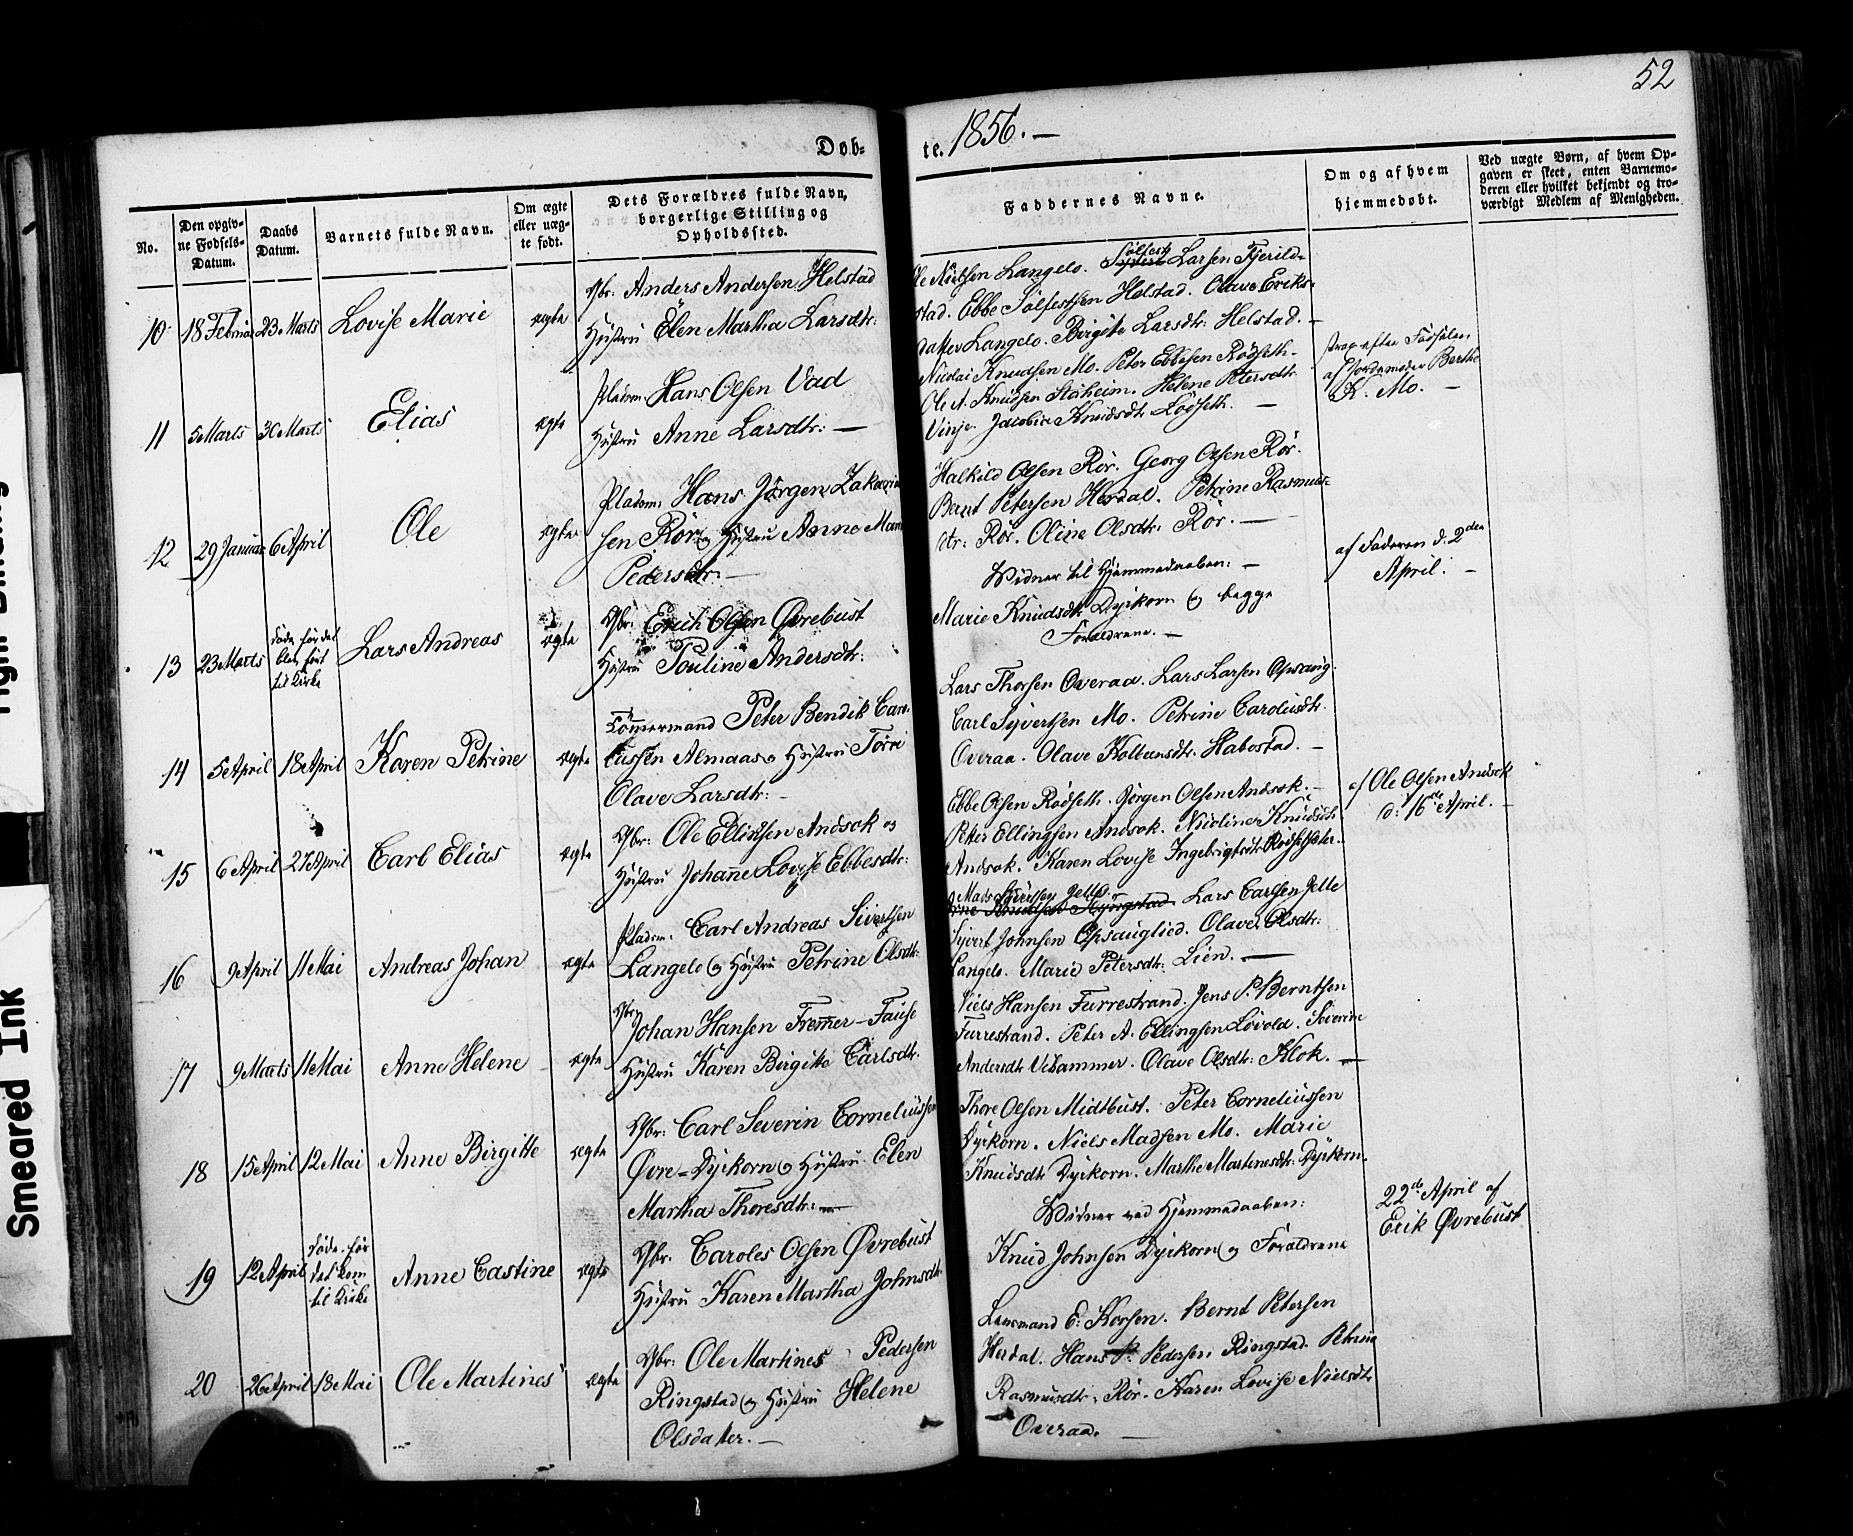 52
Døb-
te. 1856. —
No.
Den opgiv-
ne Fødsels-
Datum.
Daabs
Datum.
Barnets fulde Navn.
Om ægte
eller uæg-
te født.
Dets Forældres fulde Navn,
borgerlige Stilling og
Opholdssted.
Faddernes Navne.
Om og af hvem
hjemmedøbt.
Ved uægte Børn, af hvem Op-
gaven er skeet, enten Barnemo-
deren eller hvilket bekjendt og tro-
værdigt Medlem af Menigheden.
10 18 Februar 23 Marts Lovise Marie ægte
Gbr: Anders Andersen Helstad
Hustru Elen Martha Larsdtr:
Ole Nielsen Langelo. Sølfest Larsen Fjerild-
stad. Ebbe Sølfestsen Helstad. Olave Eriks-
datter Langelo. Birgite Larsdtr: Helstad. —
11 5 Marts 30 Marts Elias ægte
Pladsm: Hans Olsen Vad
Hustru Anne Larsdtr: —
Nicolai Knudsen Mo. Peter Ebbesen Rødseth.
Ole A. Knudsen Staheim. Helene Petersdtr
Vinje. Jacobine Knudsdtr Løgseth. —
strax efter Fødselen
af Jordemoder Berthe
K. Mo. —
12 29 Januar 6 April Ole ægte
Pladsm: Hans Jørgen Zakaria
sen Rør og Hustru Anne Marie
Pedersdtr: —
Halkild Olsen Rør. Georg Olsen Rør.
Bernt Petersen Herdal. Petrine Rasmus-
dtr: Rør. Oline Olsdtr: Rør. —
13 23 Marts
døde før det
blev ført
til Kirke
Lars Andreas ægte
Gbr: Erich Olsen Øvrebust
Hustru Pouline Andersdtr:
Vidner til Hjemmedaaben: —
Marie Knudsdtr Dyrkorn og begge
Forældrene. —
af Faderen d: 2den
April. —
14 5 April 18 April Karen Petrine ægte
Tømmermand Peter Bendik Caro-
lussen Almaas og Hustru Torri
Olave Larsdtr: —
Lars Thorsen Overaa. Lars Larsen Opsaug.
Carl Syvertsen Mo. Petrine Carolusdtr.
Overaa. Olave Kolbensdtr. Habostad. —
15 6 April 27 April Carl Elias ægte
Gbr: Ole Ellingsen Andsok og
Hustru Johanne Lovise Ebbesdtr:
Ebbe Olsen Rødseth. Jørgen Olsen Andsok. —
Peter Ellingsen Andsok. Nicoline Knudsdtr
Andsok. Karen Lovise Ingebrigtsdtr Rødsethsæter.
af Ole Olsen Andsok
d: 16de April. —
16 9 April 11 Mai Andreas Johan ægte
Pladsm: Carl Andreas Sivertsen
Langelo og Hustru Petrine Olsdtr
Mads Gelle.
Lars Carlsen Gelle
Syvert Johnsen Opsauglied. Olave Olsdtr:
Langelo. Marie Petersdtr: Lien. —
17 9 Marts 11 Mai Anne Helene ægte
Gbr: Johan Hansen Fremer-Fause
Hustru Karen Birgitte Carlsdtr.
Niels Hansen Furrestrand. Jens P. Berntsen
Furrestrand. Peter A. Ellingsen Løvold. Severine
Andersdtr Vehammer. Olave Olsdtr: Klok. —
18 15 April 12 Mai Anne Birgitte ægte
Gbr: Carl Severin Corneliussen
Øvre-Dyrkorn og Hustru Elen
Martha Thoresdtr: —
Thore Olsen Midtbust. Peter Corneliussen
Dyrkorn. Niels Madsen Mo. Marie
Knudsdtr Dyrkorn. Marthe Martinesdtr: Dyrkorn.
19 12 April
døde før
det kom
til Kirke
Anne Castine ægte
Gbr: Caroles Olsen Øvrebust
Hustru Karen Martha Johnsdtr.
Vidner ved Hjemmedaaben:
Knud Johnsen Dyrkorn og Forældrene
22de April af
Erik Øvrebust
20 26 April 18 Mai Ole Martines ægte
Gbr: Ole Martines Pedersen
Ringstad og Hustru Helene
Olsdatter. —
Lensmand E: Korsen. Bernt Petersen
Herdal. Hans P. Pedersen Ringstad. Petrine
Rasmusdtr: Rør. Karen Lovise Nielsdtr
Overaa. —
Smeared Ink